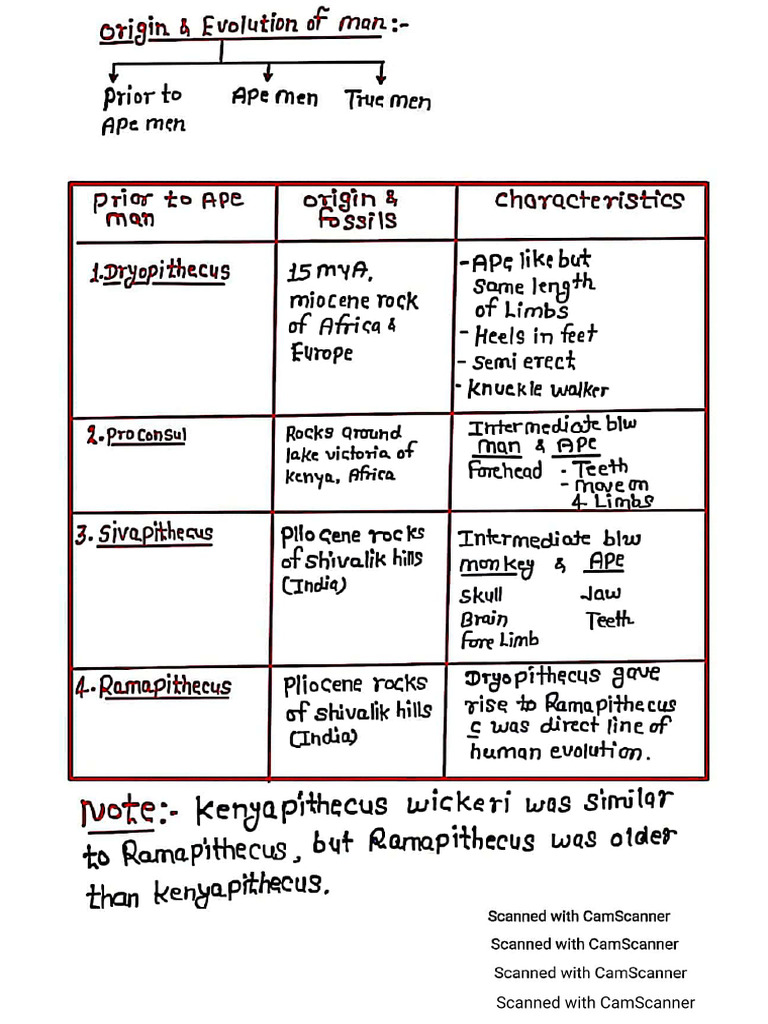 Origin & Evolution of man:-
Prior to
Ape men
Ape men
True men
Prior to Ape
man
Origin &
Fossils
Characteristics
1. Dryopithecus
15 mya,
miocene rock
of Africa &
Europe
- Ape like but
same length
of Limbs
- Heels in feet
- semi erect
- knuckle walker
2. Proconsul
Rocks around
lake victoria of
kenya, Africa
Intermediate b/w
man & Ape
Forehead - Teeth
- move on
4 Limbs
3. Sivapithecus
Pliocene rocks
of shivalik hills
(India)
Intermediate b/w
monkey & Ape
Skull Jaw
Brain Teeth
Fore Limb
4. Ramapithecus
Pliocene rocks
of shivalik hills
(India)
Dryopithecus gave
rise to Ramapithecus
c was direct line of
human evolution.
Note:- Kenyapithecus wickeri was similar
to Ramapithecus, but Ramapithecus was older
than kenyapithecus.
Scanned with CamScanner
Scanned with CamScanner
Scanned with CamScanner
Scanned with CamScanner